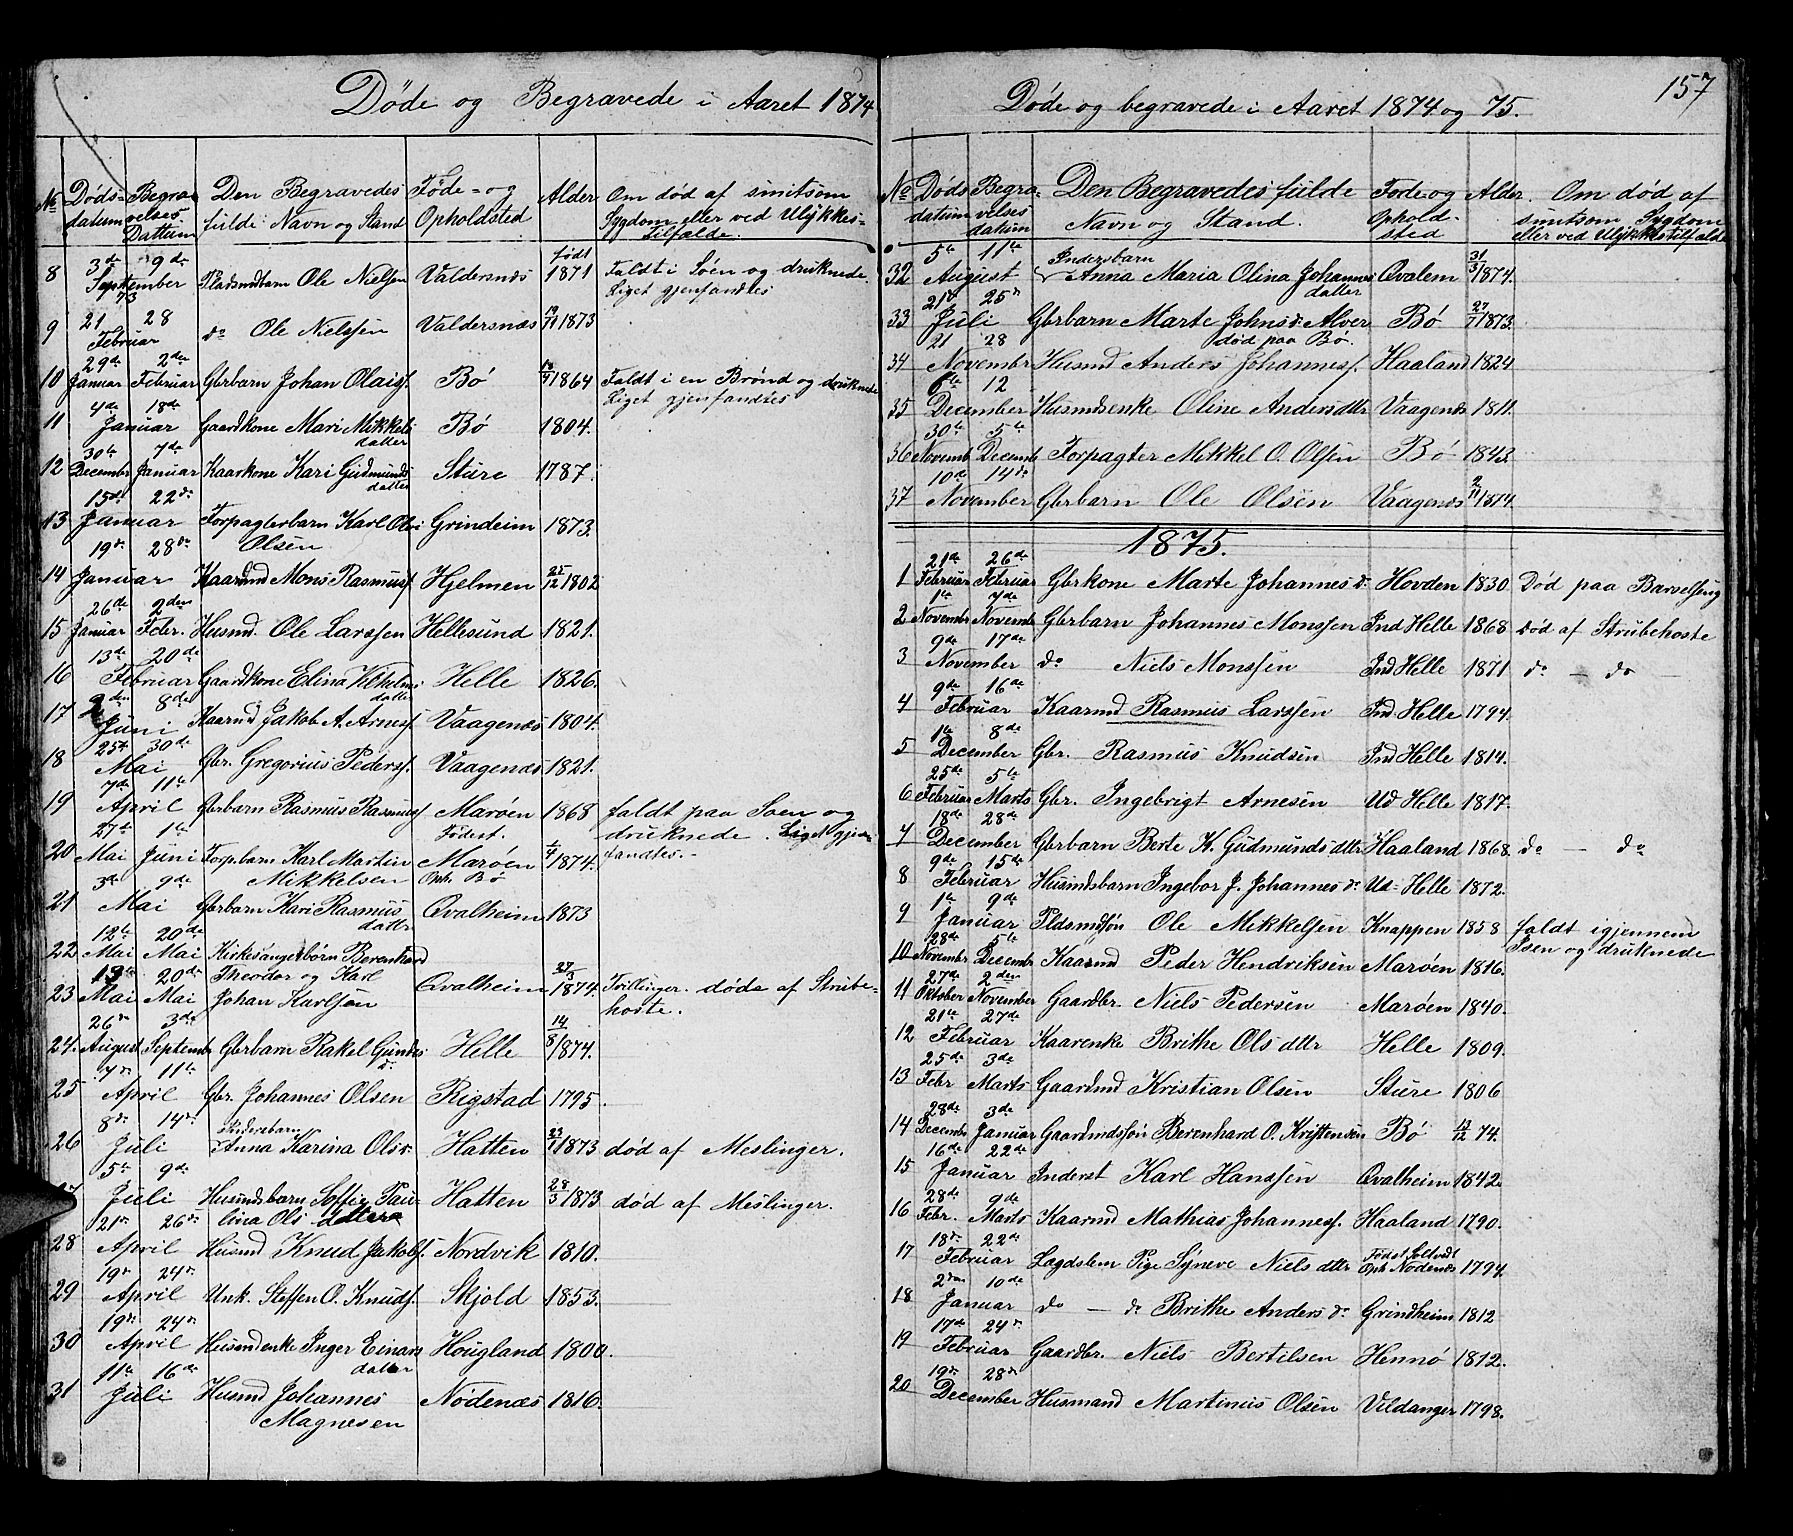 Døde og Begravede i Aaret 1874
No Døds-datum Begravelses Dattum Den Begravedes fulde Navn og Stand Føde- og Opholdsted Alder Om død af smitsom Sygdom eller ved Ulykkes-Tilfælde.
8 3de 9de September 73 Pladsmdbarn Ole Nielsen Valdersnæs født 1871 Faldt i Søen og druknede Liget gjenfandtes
9 21 28 Februar do Ole Nielsen Valdersnæs 1873
10 29de Januar 2den Februar Gbrbarn Johan Olais. Bø 1864 Faldt i en Brønd og druknede Liget gjenfandtes
11 4de 18de Januar Gaardkone Mari Mikkels datter Bø 1804.
12 30te December 7de Januar Kaarkone Kari Gudmunds datter Sture 1787.
13 15de 22de Januar Forpagterbarn Karl Olai Olsen Grindeim 1873.
14 19de 28de Januar Kaarmd Mons Rasmuss. Hjelmen 25/12 1802
15 26de Januar 2den Febr. Husmd. Ole Larssen Hellesund 1821.
16 13de 20de Februar Gaardkone Elina Vilhelms datter Helle 1826.
17 2den 8de Juni Kaarmd Jakob A. Arnes. Vaagenæs 1804.
18 25de 30de Mai Gbr. Gregorius Peders. Vaagenæs 1821.
19 7de 11te April Gbrbarn Rasmus Rasmuss. Marøen 1868 faldt paa Søen og druknede. Liget gjenfandtes.-
20 27de Mai 1te Juni Forpbarn Karl Martin Mikkelsen Fødest. Marøen Oph. Bø 1874.
21 3de 9de Mai Gbrbarn Kari Rasmus datter Qvalheim 1873
22 12te Mai 20de Mai Kirkesangerbørn Berenhard Theodor og Karl
23 Mai 20de Mai Johan Karlsen Qvalheim 27/3 1874. Trillinger. døde af Strube-hoste.
24. 26de August 3de Septembr Gbrbarn Rakel Gundes d. Helle 14/8 1874.
25 7de 11te April Gbr. Johannes Olsen Rigstad 1795.
26 8de 14de Juli Inderstbarn Anna Karina Ols d. Hatten 23/1 1873 død af Meslinger.
27 5te 9de Juli Husmdsbarn Soffie Paulina Ols datter Hatten 28/3 1873 død af Meslinger.
28 21de 26de April Husmd Knud Jakobs. Nordvik 1810.
29 19de 24de April Unk. Steffen O. Knuds. Skjold 1853.
30 19de 24de April Husmdenke Inger Einars datter Hougland 1800.
31 11te 16de Juli Husmd Johannes Magnesen Nødenæs 1816.
157
Døde og begravede i Aaret 1874 og 75.
No Døds datum Begravelses datum Den Begravedes fulde Navn og Stand. Føde og Opholdsted Alder. Om død af smitsom Sygdom eller ved Ulykkestilfælde
32 5te 11te August Inderstbarn Anna Maria Olina Johannes datter Qvalem 31/3 1874.
33 21de 25de Juli Gbrbarn Marte Johns d. Alver død paa Bø. Bø 27/7 1873.
34 21 28 Novembr Husmd Anders Johannes. Haaland 1824.
35 6te 12 December Husmdsenke Oline Anders dttr Vaagenæs 1811.
36 30te Novemb 5te Decemb Forpagter Mikkel O. Olsen Bø 1843.
37 10de 14de November Gbrbarn Ole Olsen Vaagenæs 2/11 1874.
1875.
1 21de Februar 26de Februar Gbrkone Marte Johannes d. Hovden 1830 Død paa Barselseng
2 1te Novembr 7de Novembr Gbrbarn Johannes Monssen Ind Helle 1868 død af Strubehoste
3 9de 17de November do Niels Monssen Ind Helle 1871 do - do -
4 9de 16de Februar Kaarmd Rasmus Larssen Ind Helle 1794.
5 1te 8de December Gbr. Rasmus Knudsen Ind Helle 1814.
6 25de Februar 5te Marts Gbr. Ingebrigt Arnesen Ud Helle 1817.
7 18de 28de December Gbrbarn Berte K. Gudmunds dttr Haaland 1868. do - do
8 9de 15de Februar Husmdsbarn Ingebor J. Johannes d. Ud-Helle 1872.
9 1te 9de Januar Pldsmdssøn Ole Mikkelsen Knappen 1858 faldt igjennem Isen og druknede
10 28de Novembr 5te Decembr Kaarmd Peder Hendriksen Marøen 1816.
11 27de Oktober 2den November Gaardbr. Niels Pedersen Marøen 1840.
12 21te 27de Februar Kaarenke Brithe Ols dttr Helle 1809.
13 25de Febr 3de Marts Gaardmd Kristian Olsen Sture 1806
14 28de Decembr 3de Januar Gaardmdssøn Berenhard O. Kristensen Bø 74.
15 16de 22de Januar Inderst Karl Hanssen Qvalheim 1842.
16 28de Febr. 9de Marts Kaarmd Mathias Johannes. Haaland 1790.
17 18de 22de Februar Lagdslem Pige Syneve Niels dttr Født Soltvedt Oph. Nødenæs 1794.
18 2den 10de Januar do - do Brithe Anders d. Grindheim 1812
19 17de 24de Februar Gaardbr. Niels Bertilsen Hennø 1812.
20 19de 28de December Husmand Martinus Olsen Vildanger 1798.